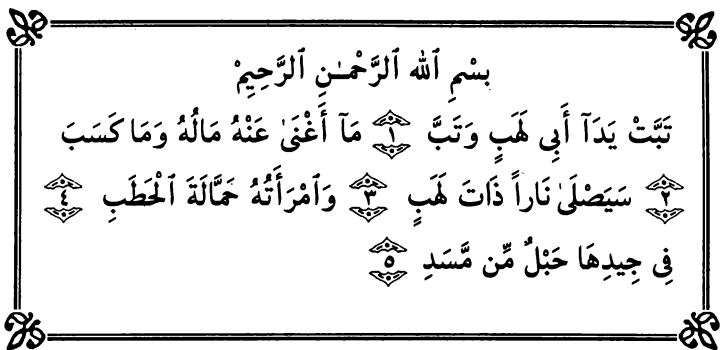 بِسْمِ ٱللهِ ٱلرَّحْمَـٰنِ ٱلرَّحِيمِْ
تَبَّتْ يَدَآ أَبِى لَهَبٍ وَتَبَّ ١ مَآ أَغْنَىٰ عَنْهُ مَالُهُ وَمَا كَسَبَ
٢ سَيَصْلَىٰ نَاراً ذَاتَ لَهَبٍ ٣ وَٱمْرَأَتُهُ حَمَّالَةَ ٱلْحَطَبِ ٤
فِى جِيدِهَا حَبْلٌ مِّن مَّسَدٍ ٥